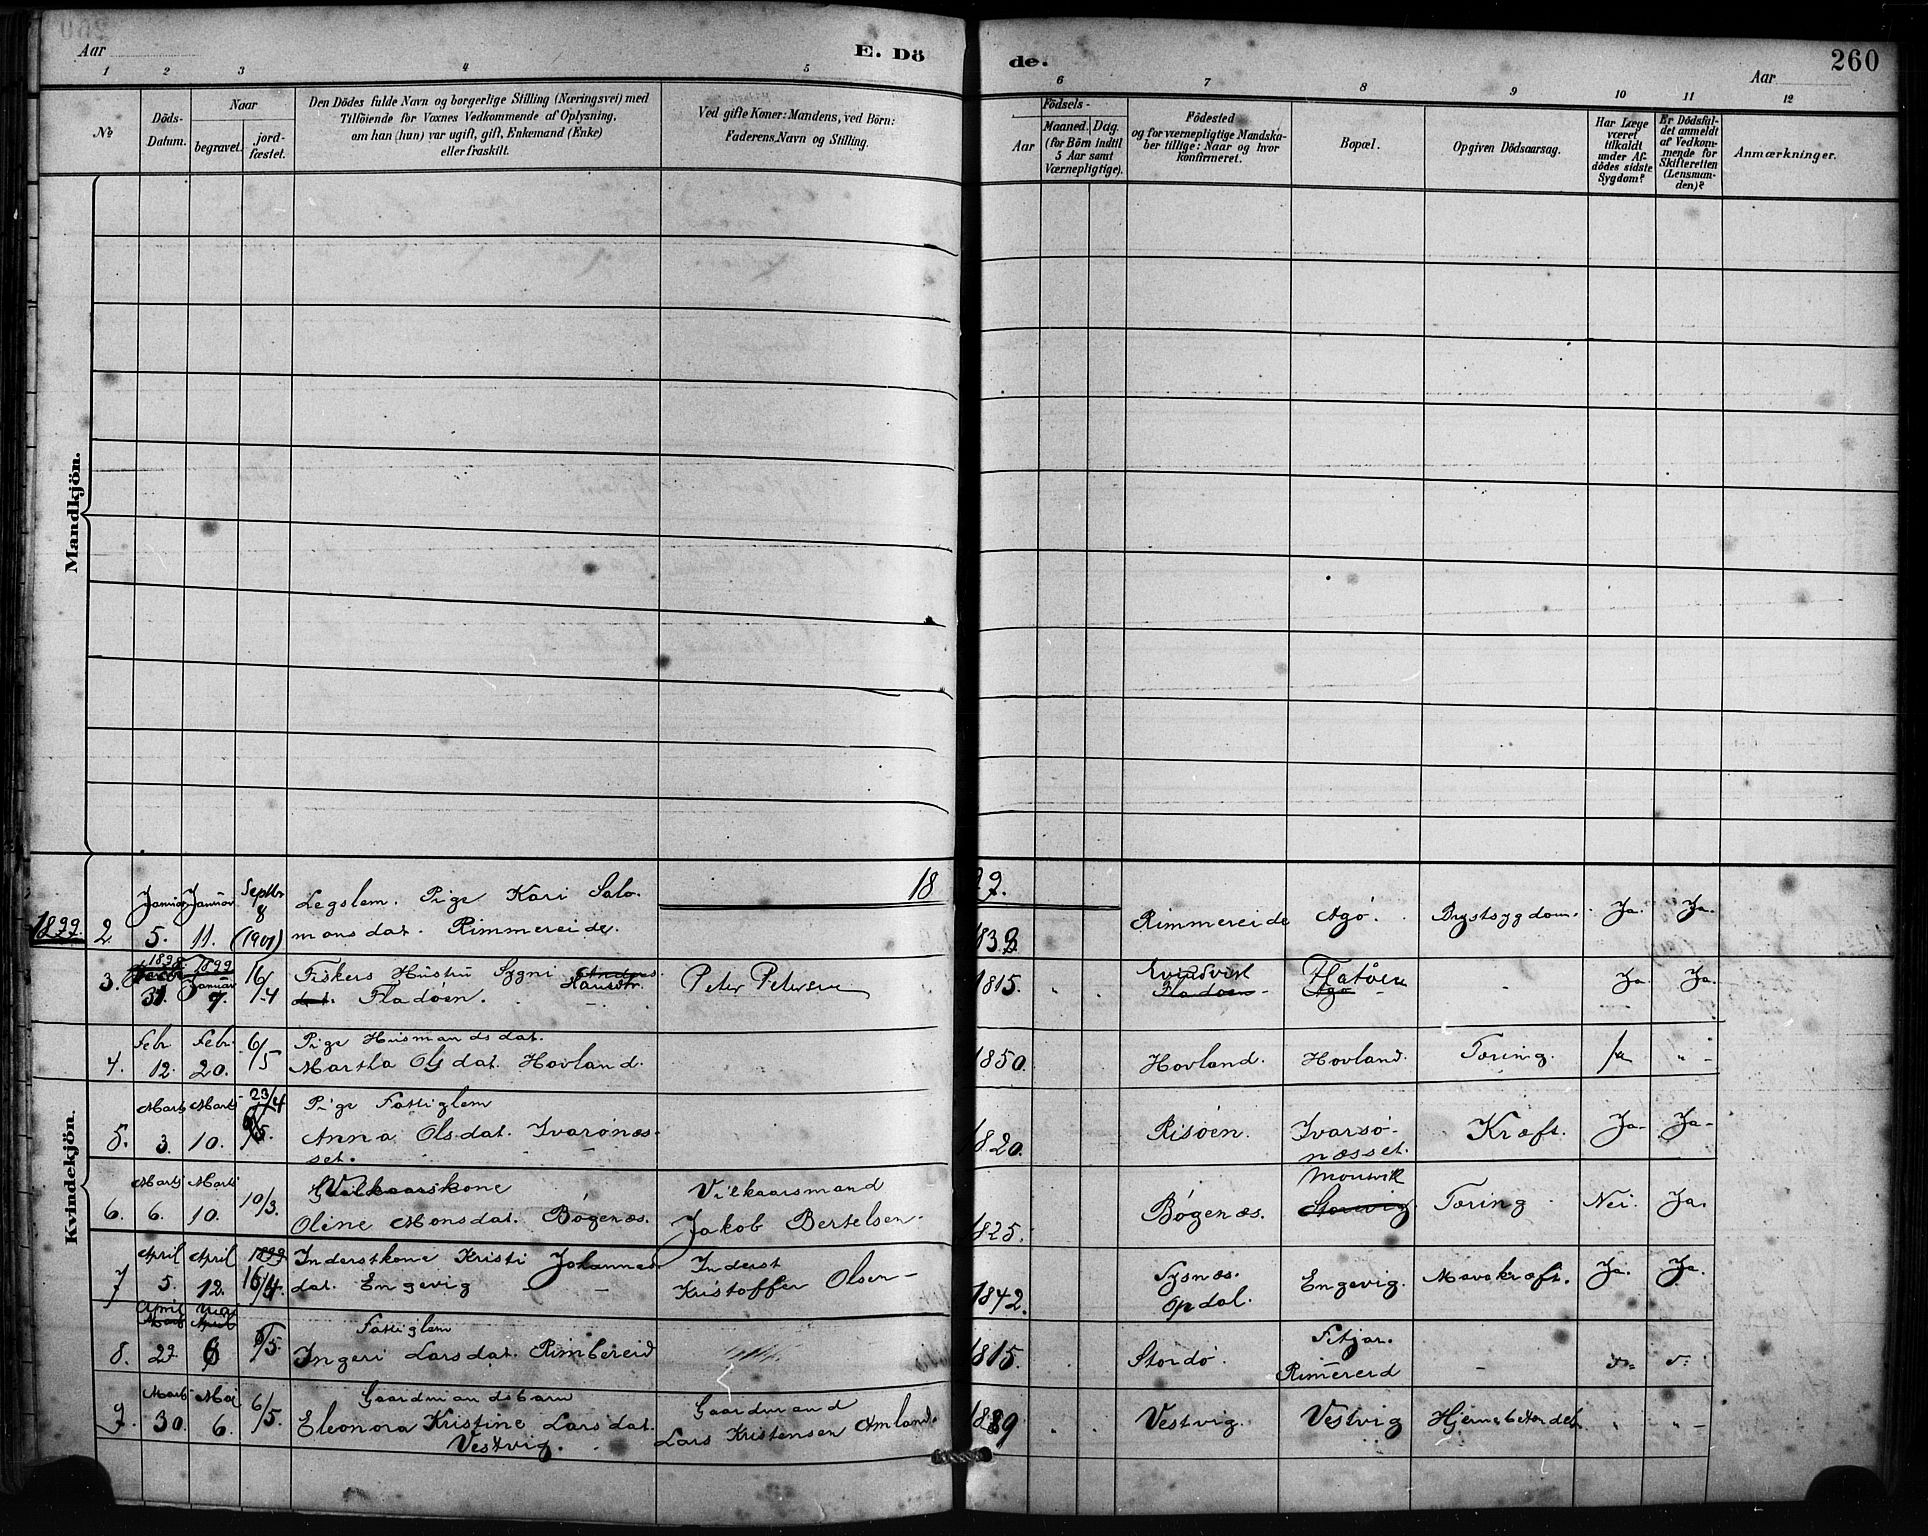 Aar
E. Dö
de.
Aar
260
1 2 3 4 5 6 7 8 9 10 11 12
No
Döds-
Datum.
Naar
begravet.
jord-
fæstet.
Den Dödes fulde Navn og borgerlige Stilling (Næringsvei) med
Tilföiende for Voxnes Vedkommende af Oplysning,
om han (hun) var ugift, gift, Enkemand (Enke)
eller fraskilt.
Ved gifte Koner: Mandens, ved Börn:
Faderens Navn og Stilling.
Födsels-
Aar
Maaned. Dag.
(for Börn indtil
5 Aar samt
Værnepligtige).
Födested
og for værnepligtige Mandska-
ber tillige: Naar og hvor
konfirmeret.
Bopæl.
Opgiven Dödsaarsag.
Har Læge
været
tilkaldt
under Af-
dödes sidste
Sygdom?
Er Dödsfal-
det anmeldt
af Vedkom-
mende for
Skifteretten
(Lensman-
den)?
Anmærkninger.
Mandkjön.
Kvindekjön.
18 99.
1899.
2. Januar 5. Januar 11. Septbr 8 (1901)
Legslem. Pige Kari Salo-
monsdat. Rimmereide.
1832 Rimmereide Agö. Brystsygdom. Ja. Ja.
3. 1898 31. 1899 Januar 7. 16/4
Fiskers Hustru Sygni Andreas-
dat. Hansdtr. Fladöen.
Peter Petersen
1815. Evindvik Fladöen Flatöen Agö Ja. Ja.
4. Febr. 12. Febr. 20. 6/5
Pige Husmandsdat.
Martha Olsdat. Hovland.
1850. Hovland. Hovland. Tæring. Ja " -
5. Marts 3. Marts 10. 23/4 6/5.
Pige Fattiglem
Anna Olsdat. Ivarönæs-
set.
1820. Risöen. Ivarsö-
næsset. Kræft. Ja- Ja-
6. Marts 6. Marts 10. 10/3.
Vilkaarskone
Oline Monsdat. Bögenæs.
Vilkaarsmand
Jakob Bertelsen-
1825. Bögenæs. Monsvik Storevig. Tæring Nei. Ja.
7 April 5. April 12. 1899 16/4
Inderstkone Kristi Johannes-
dat. Engevig
Inderst
Kristoffer Olsen-
1842. Sysnæs.
Opdal. Engevig. Mavekræft. Ja. Ja.
8. April Marts 29. Mai April 6 6/5.
Fattiglem
Ingeri Larsdat. Rimbereid
1815. Stordö. Fitjar.
Rimereid -
9. Marts 30. Mai 6. 6/5.
Gaardmandsbarn
Eleonora Kristine Larsdat.
Vestvig.
Gaardmand
Lars Kristensen Amland.
1889 Vestvig. Vestvig Hjernebetændel. " " -